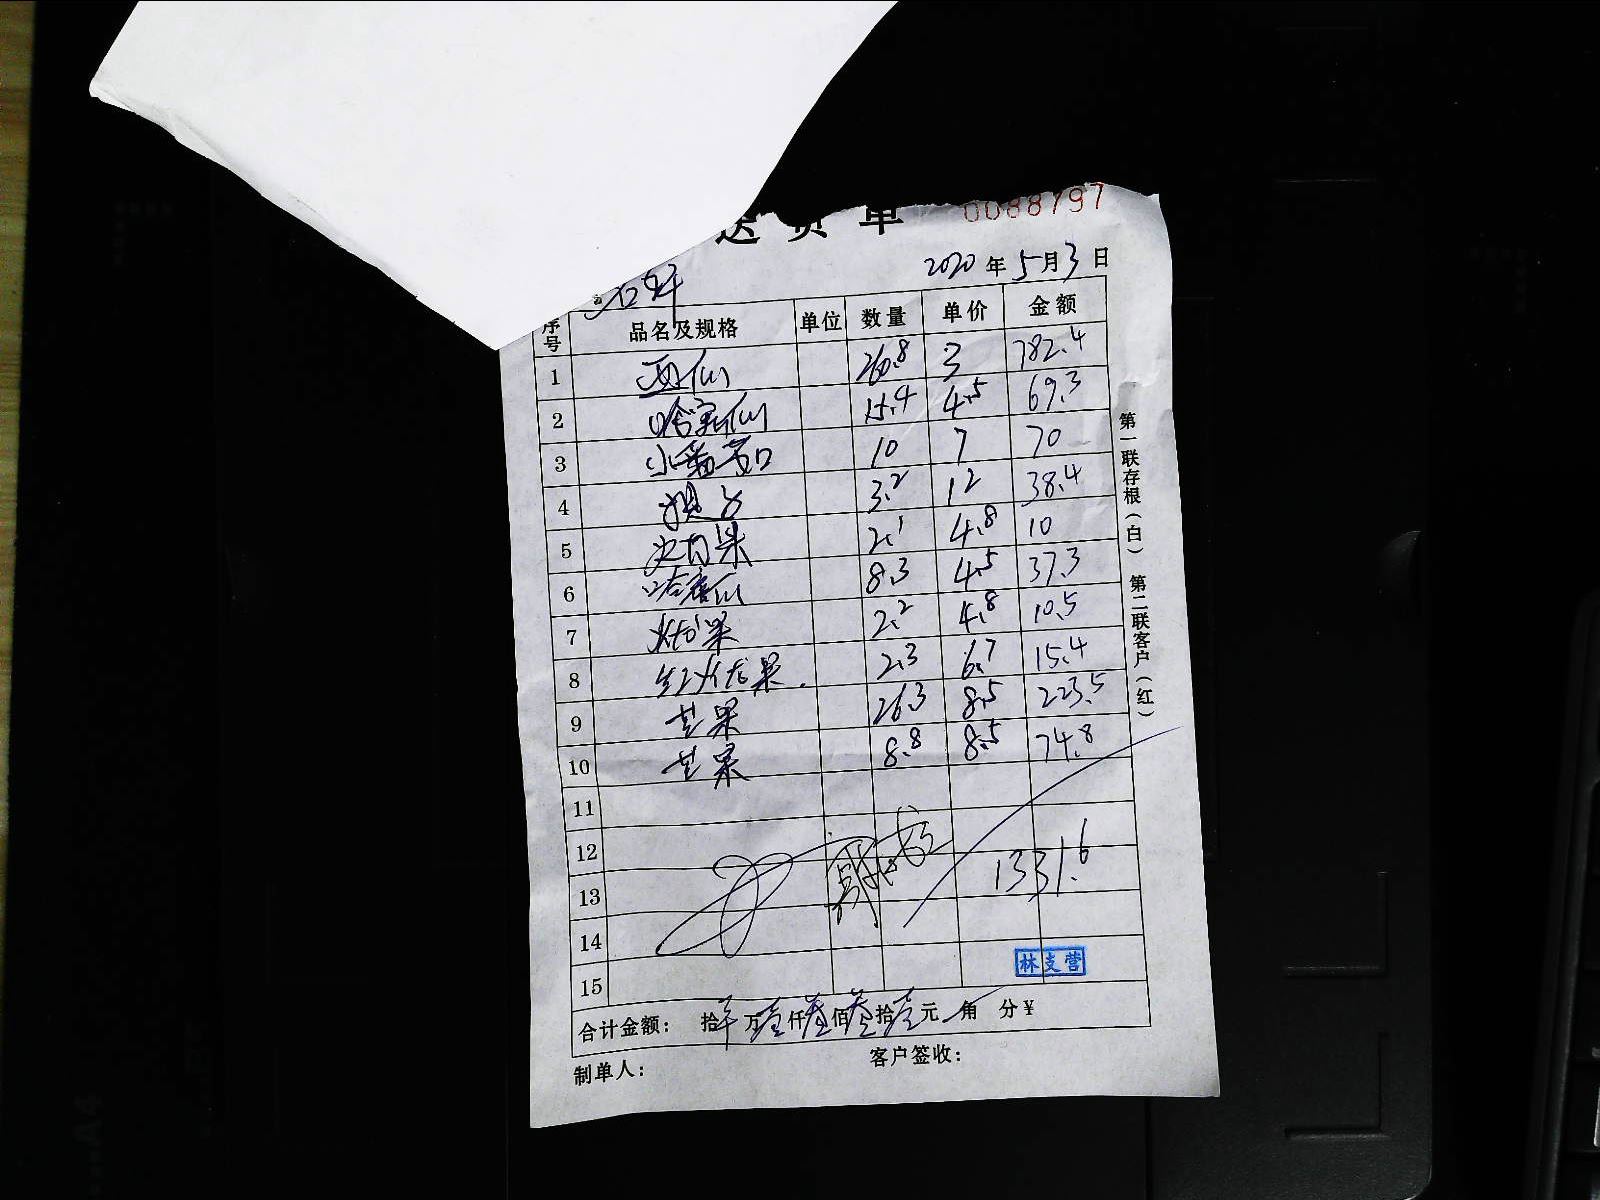 送货单 0088797
2020年5月3日
序号 品名及规格 单位 数量 单价 金额
1 西仙 260.8 3 782.4
2 哈密仙 15.4 4.5 69.3
3 小番茄 10 7 70
4 提子 3.2 12 38.4
5 火有果 2.1 4.8 10
6 哈密仙 8.3 4.5 37.3
7 火龙果 2.2 4.8 10.5
8 红火龙果. 2.3 6.7 15.4
9 芒果 26.3 8.5 223.5
10 芒果 8.8 8.5 74.8
11
12
13 1331.6
14
15 林支营
合计金额: 拾 万壹仟叁佰叁拾壹元 角 分¥
制单人: 客户签收:
第一联存根(白) 第二联客户(红)